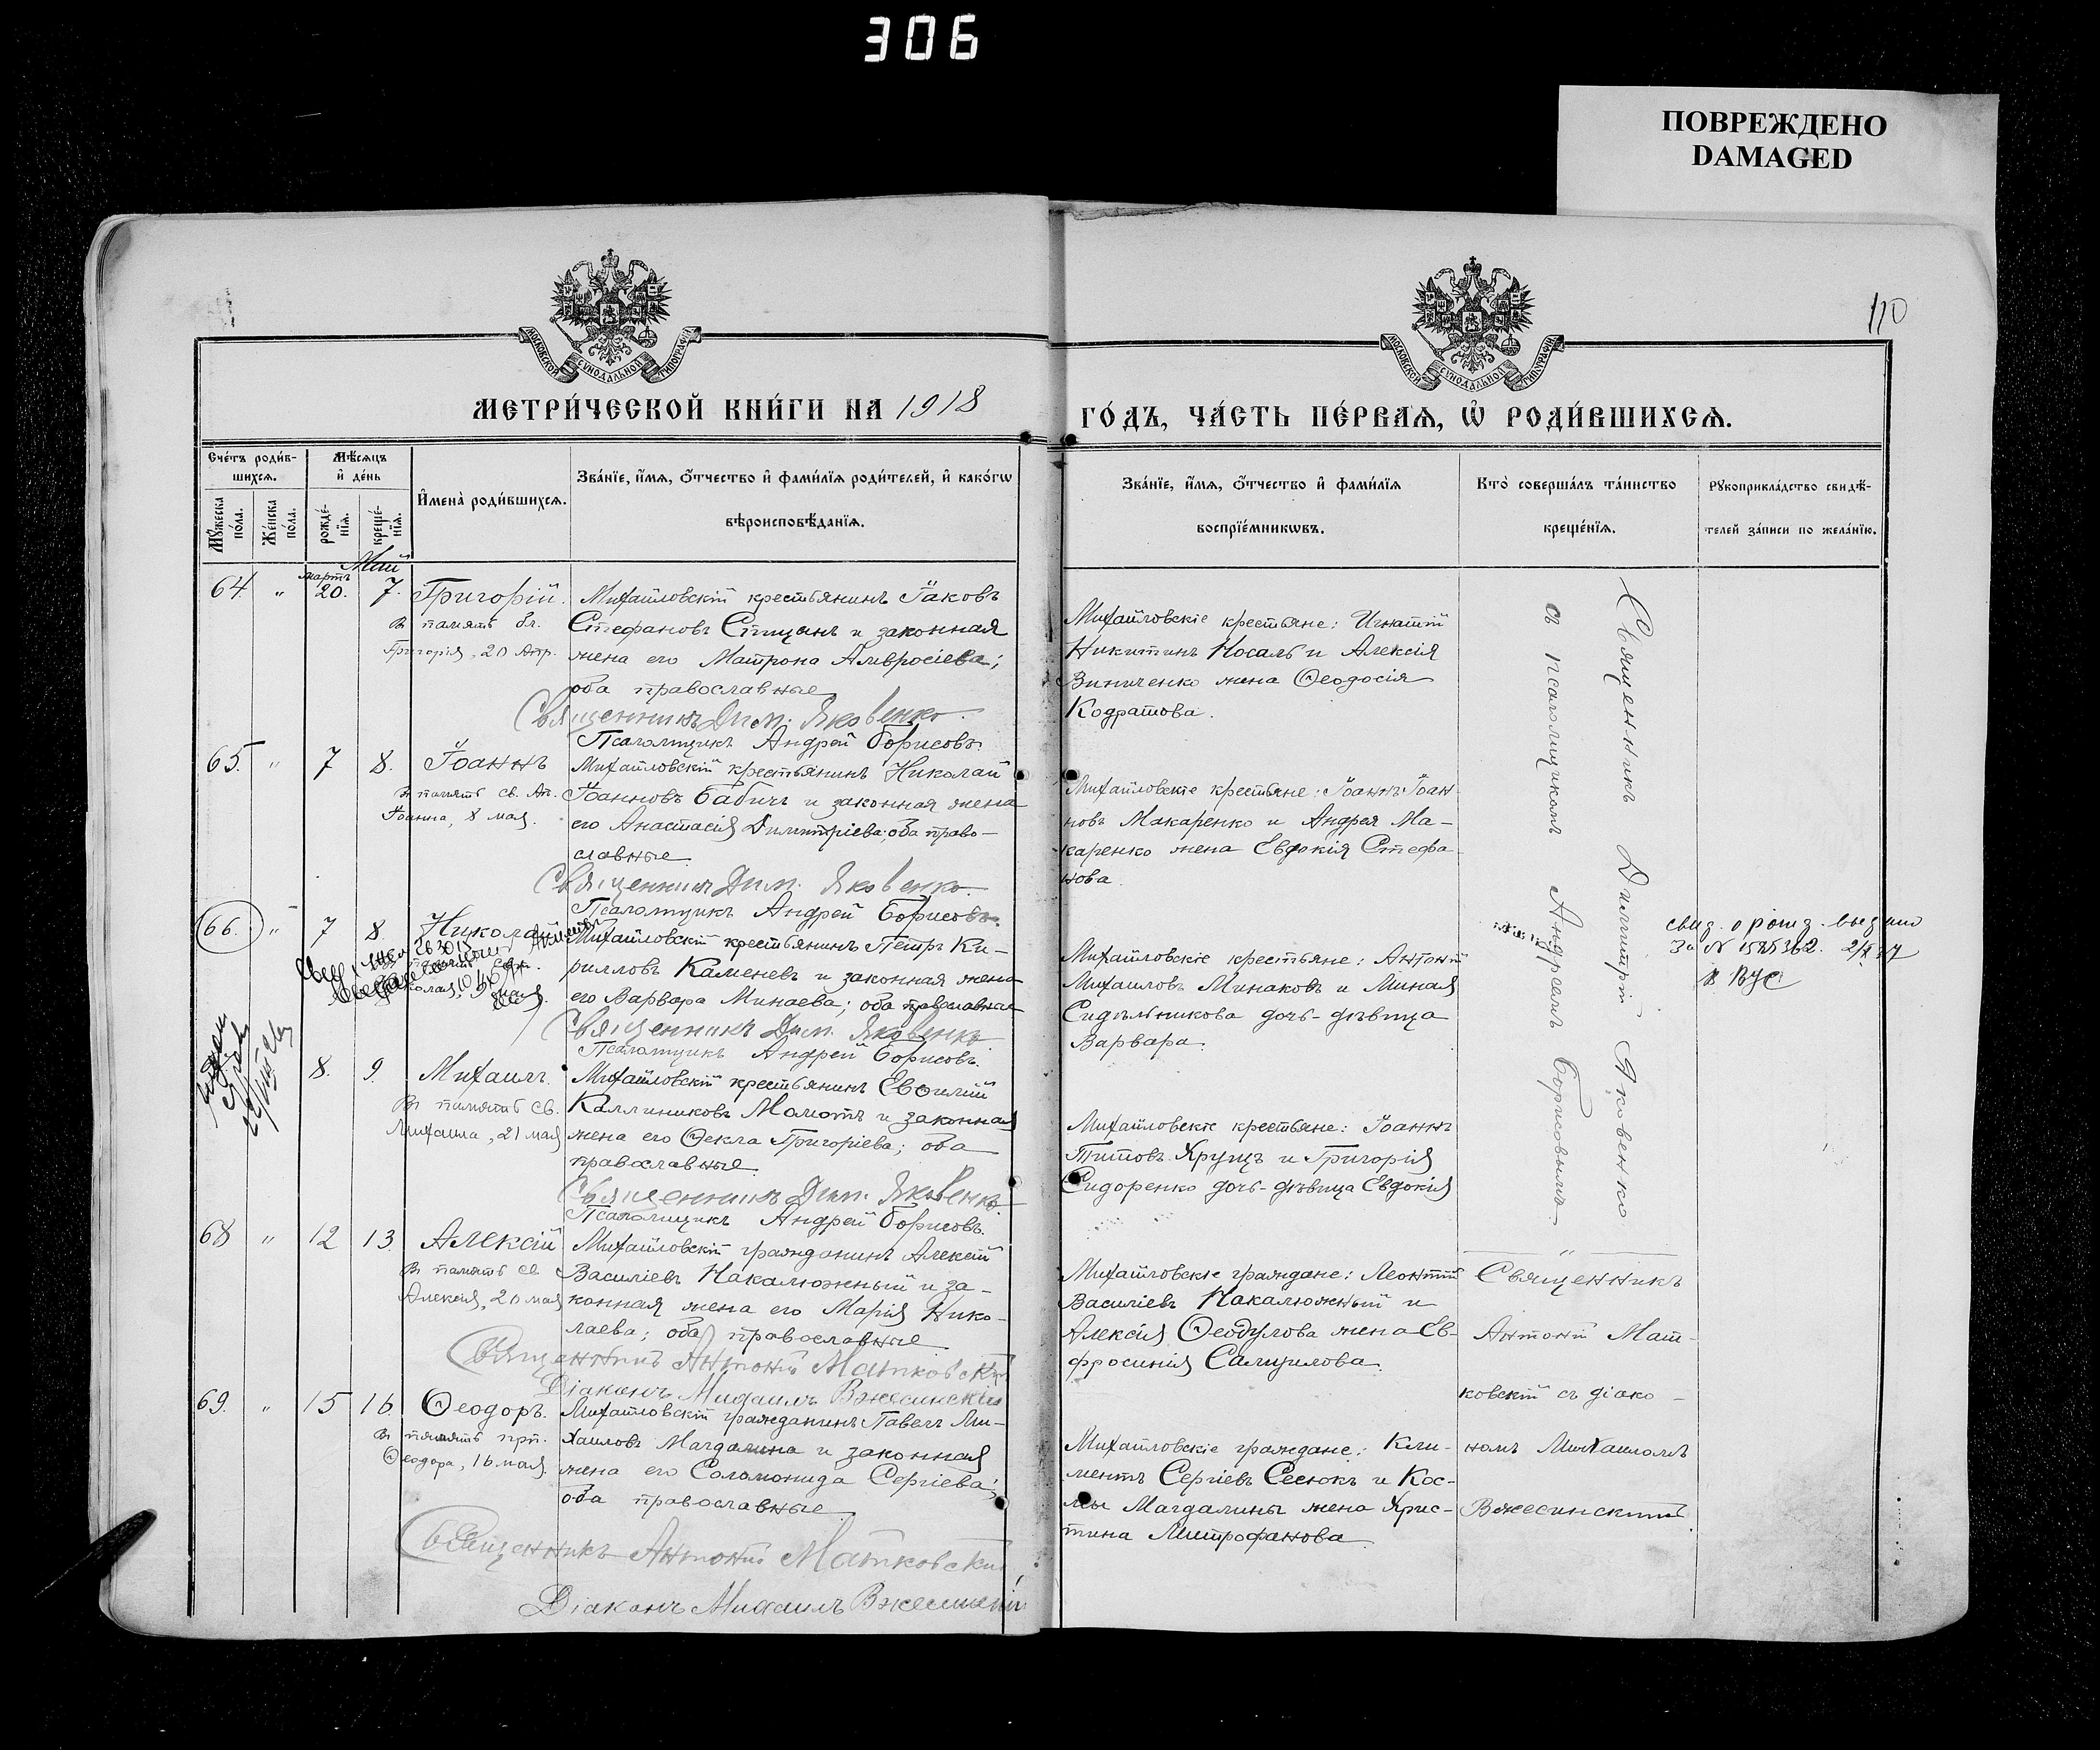 306
ПОВРЕЖДЕНО
DAMAGED
110
МОСКОВСКОЙ СѴНОДАЛЬНОЙ ТИПОГРАФІИ
МОСКОВСКОЙ СѴНОДАЛЬНОЙ ТИПОГРАФІИ
МЕТРИ́ЧЕСКОЙ КНИ́ГИ НА 1918
ГО́ДЪ, ЧА́СТЬ ПЕ́РВАѦ, Ѡ҆ РОДИ́ВШИХСѦ.
Сче́тъ роди́в-
шихсѧ.
Мѣ́сѧцъ
и҆ де́нь
Мꙋ́жеска
по́ла.
Же́нска
по́ла.
рожде́-
нїѧ.
креще́-
нїѧ.
И҆мена̀ роди́вшихсѧ.
Зва́нїе, и҆́мѧ, ѻ҆́тчество и҆ фами́лїѧ роди́телей, и҆ како́гѡ
вѣроисповѣ́данїѧ.
Зва́нїе, и҆́мѧ, ѻ҆́тчество и҆ фами́лїѧ
воспрїе́мникѡвъ.
Кто̀ соверша́лъ та́инство
креще́нїѧ.
Рꙋкоприкла́дство свидѣ́-
телей за́писи по жела́нїю.
Май
мартъ
64 " 20. 7. Григорій.
Въ память бл.
Григорія, 20 Апр.
Михайловскій крестьянинъ Іаковъ
Стефановъ Спицынъ и законная
жена его Матрона Амвросіева;
оба православные
Священникъ Дим. Яковенко.
Псаломщикъ Андрей Борисовъ.
Михайловскіе крестьяне: Игнатій
Никитинъ Носаль и Алексія
Виниченко жена Ѳеодосія
Кодратова.
65. " 7 8. Іоаннъ
Въ память св. Ап.
Іоанна, 8 мая.
Михайловскій крестьянинъ Николай
Іоанновъ Бабичъ и законная жена
его Анастасія Димитріева; оба право-
славные
Священникъ Дим. Яковенко.
Псаломщикъ Андрей Борисовъ.
Михайловскіе крестьяне: Іоаннъ Іоан
новъ Макаренко и Андрея Ма-
каренко жена Евдокія Стефа
нова
66. " 7 8 Николай
9 мая.
Михайловскій крестьянинъ Петръ Ки-
рилловъ Каменевъ и законная жена
его Варвара Минаева; оба православные
Священникъ Дим. Яковенко
Псаломщикъ Андрей Борисовъ.
Михайловскіе крестьяне: Антоній
Михаиловъ Минаковъ и Миная
Сидѣльникова дочь-дѣвица
Варвара.
свид. о рожд. выдано
За №
8. 9. Михаилъ.
Въ память св.
Михаила, 21 мая
Михайловскій крестьянинъ Евѳимій
Каллиниковъ Момотъ и законная
жена его Ѳекла Григоріева; оба
православные
Священникъ Дим. Яковенко
Псаломщикъ Андрей Борисовъ.
Михайловскіе крестьяне: Іоаннъ
Титовъ Хрущъ и Григорія
Сидоренко дочь-дѣвица Евдокія
Священникъ Димитрій Яковенко
съ псаломщикомъ Андреемъ Борисовымъ
68 " 12 13. Алексій
Въ память св
Алексія, 20 мая
Михайловскій гражданинъ Алексій
Василіевъ Накалюжный и за-
конная жена его Марія Нико-
лаева; оба православные
Священникъ Антоній Матковскій
Діаконъ Михаилъ Вжесинскій
Михайловскіе граждане: Леонтій
Василіевъ Накалюжный и
Алексія Ѳеодулова жена Ев-
фросинія Самуилова
69. " 15 16. Ѳеодоръ.
Въ память прп.
Ѳеодора, 16 мая.
Михайловскій гражданинъ Павелъ Ми-
хаиловъ Магдалина и законная
жена его Соломонида Сергіева;
оба православные
Священникъ Антоній Матковскій
Діаконъ Михаилъ Вжесинскій
Михайловскіе граждане: Кли-
ментъ Сергіевъ Сесюкъ и Кос-
мы Магдалины жена Хрис-
тина Митрофанова
Священникъ
Антоній Мат-
ковскій съ діако-
номъ Михаиломъ
Вжесинскимъ